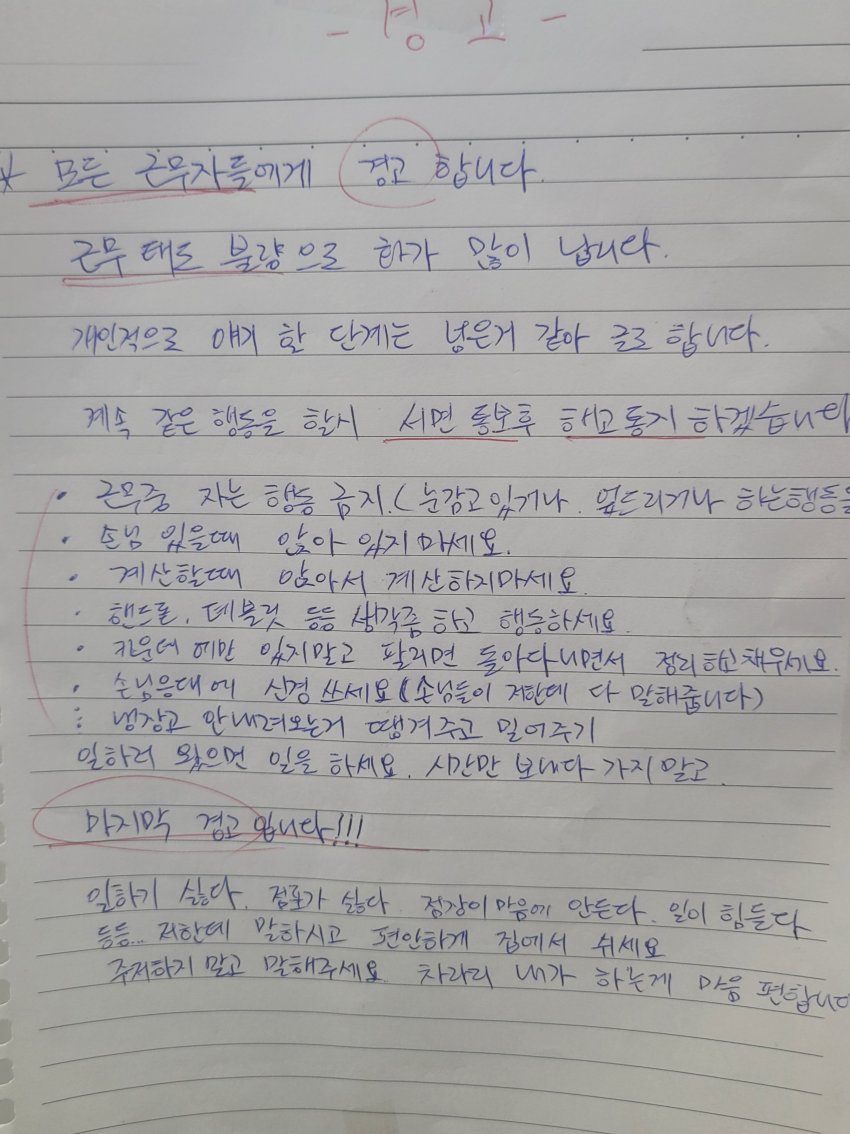 - 경 고 -
* 모든 근무자들에게 경고 합니다.
근무 태도 불량으로 화가 많이 납니다.
개인적으로 얘기 할 단계는 넘은거 같아 글로 합니다.
계속 같은 행동을 할시 서면 통보후 해고통지 하겠습니다
• 근무중 자는 행동 금지.(눈감고있거나. 엎드리거나 하는행동을
• 손님 있을때 앉아 있지마세요.
• 계산할때 앉아서 계산하지마세요.
• 핸드폰, 태블릿 등등 생각좀 하고 행동하세요.
• 카운데에만 있지말고 팔리면 돌아다니면서 정리하고채우세요.
• 손님응대에 신경 쓰세요(손님들이 저한데 다 말해줍니다)
: 냉장고 안내려오는거 땡겨주고 밀어주기
일하러 왔으면 일을 하세요. 시간만 보내다 가지말고.
마지막 경고입니다!!!
일하기 싫다. 점포가 싫다. 점장이 마음에 안든다. 일이 힘들다
등등... 저한데 말하시고 편안하게 집에서 쉬세요
주저하지 말고 말해주세요. 차라리 내가 하는게 마음 편합니다